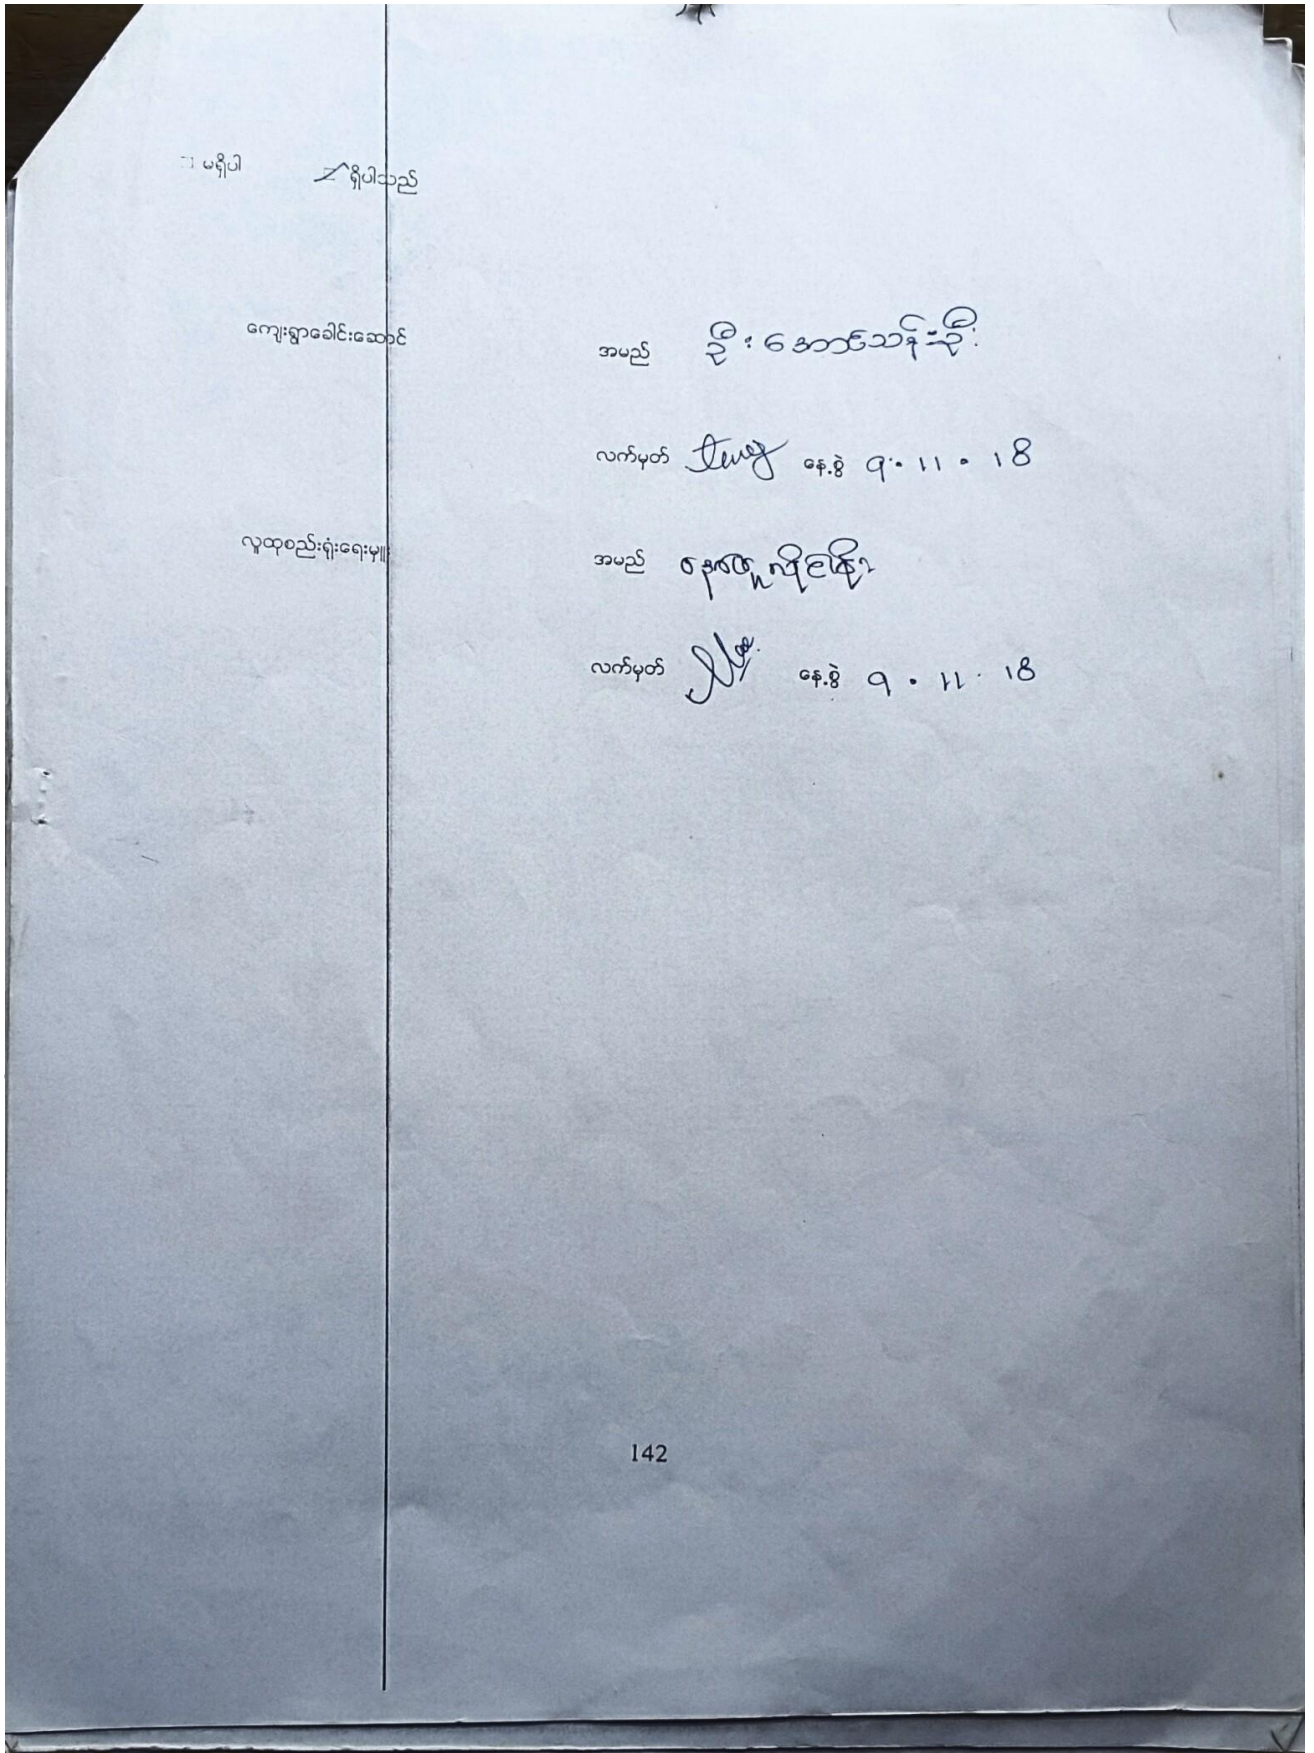 မရှိပါ ရှိပါသည်
ကျေးရွာခေါင်းဆောင် အမည် ဦးအောင်သန်းဦး
လက်မှတ် နေ့စွဲ ၅.11.18
လူထုစည်းရုံးရေးမှူး အမည်
လက်မှတ် နေ့စွဲ ၅.11.18
142